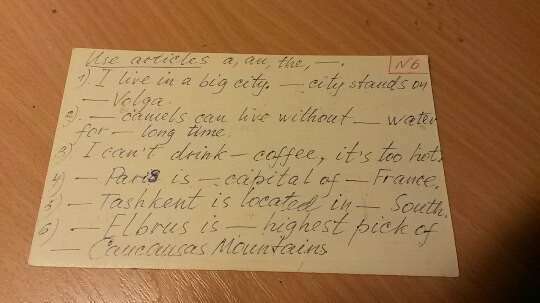 Use articles a, an, the, —.
N6
1). I live in a big city. — city stands on
— Volga.
2). — camels can live without — water
for — long time.
3) I can't drink — coffee, it's too hot.
4) — Paris is — capital of — France.
5) — Tashkent is located in — South.
6) — Elbrus is — highest pick of
— Caucausas Mountains